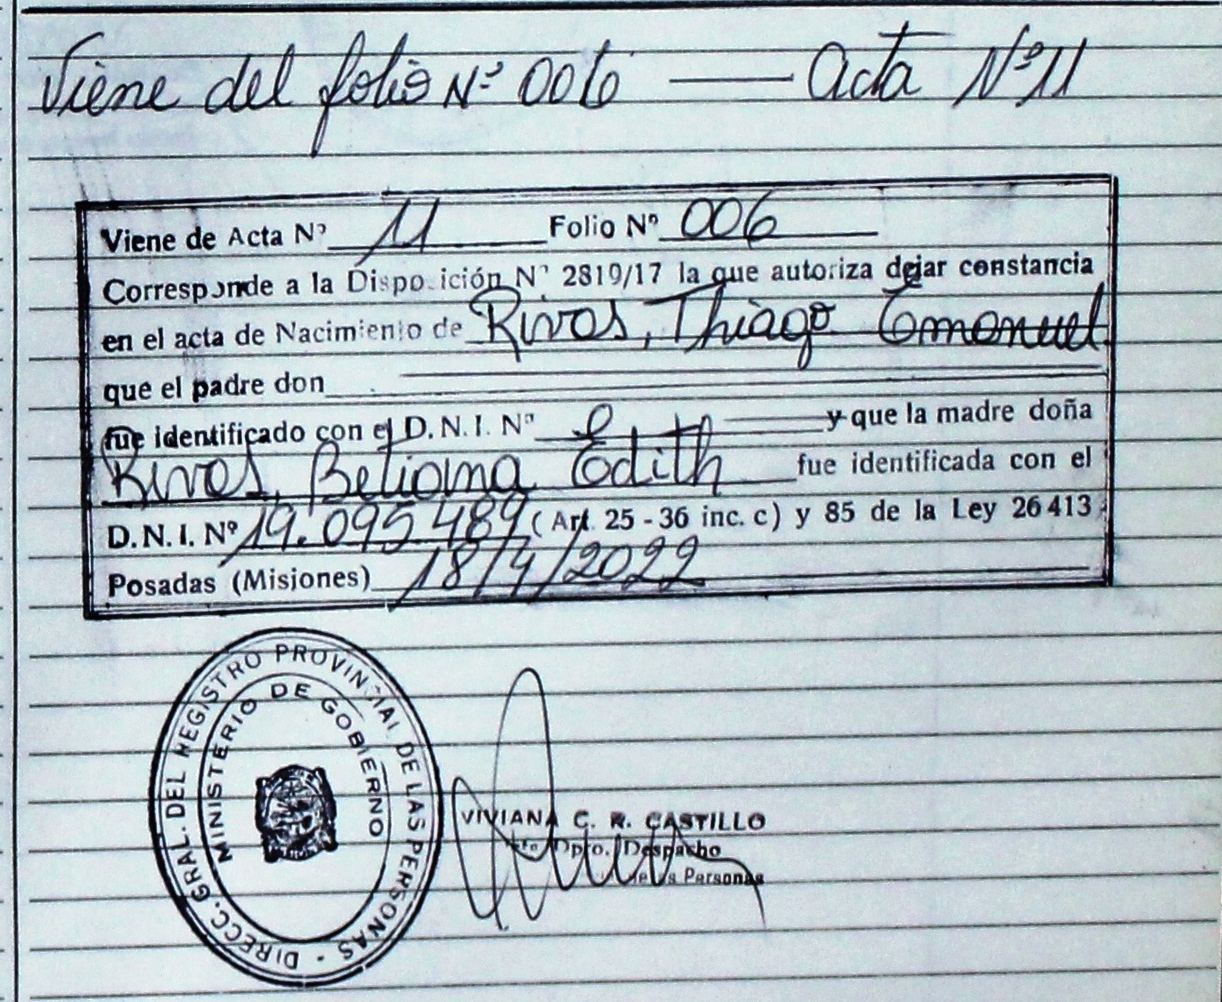 Viene del folio Nº 006 —— Acta Nº 11
Viene de Acta Nº 11 Folio Nº 006
Corresponde a la Disposición Nº 2819/17 la que autoriza dejar constancia
en el acta de Nacimiento de Rivas, Thiago Emanuel
que el padre don
fue identificado con el D.N.I. Nº y que la madre doña
Rivas, Betiana Edith fue identificada con el
D.N.I. Nº 19.095.489 (Art. 25-36 inc. c) y 85 de la Ley 26413
Posadas (Misiones) 18/4/2022
DIRECC. GRAL. DEL REGISTRO PROVINCIAL DE LAS PERSONAS -
MINISTERIO DE GOBIERNO
VIVIANA C. R. CASTILLO
Dpto. Despacho
Personas